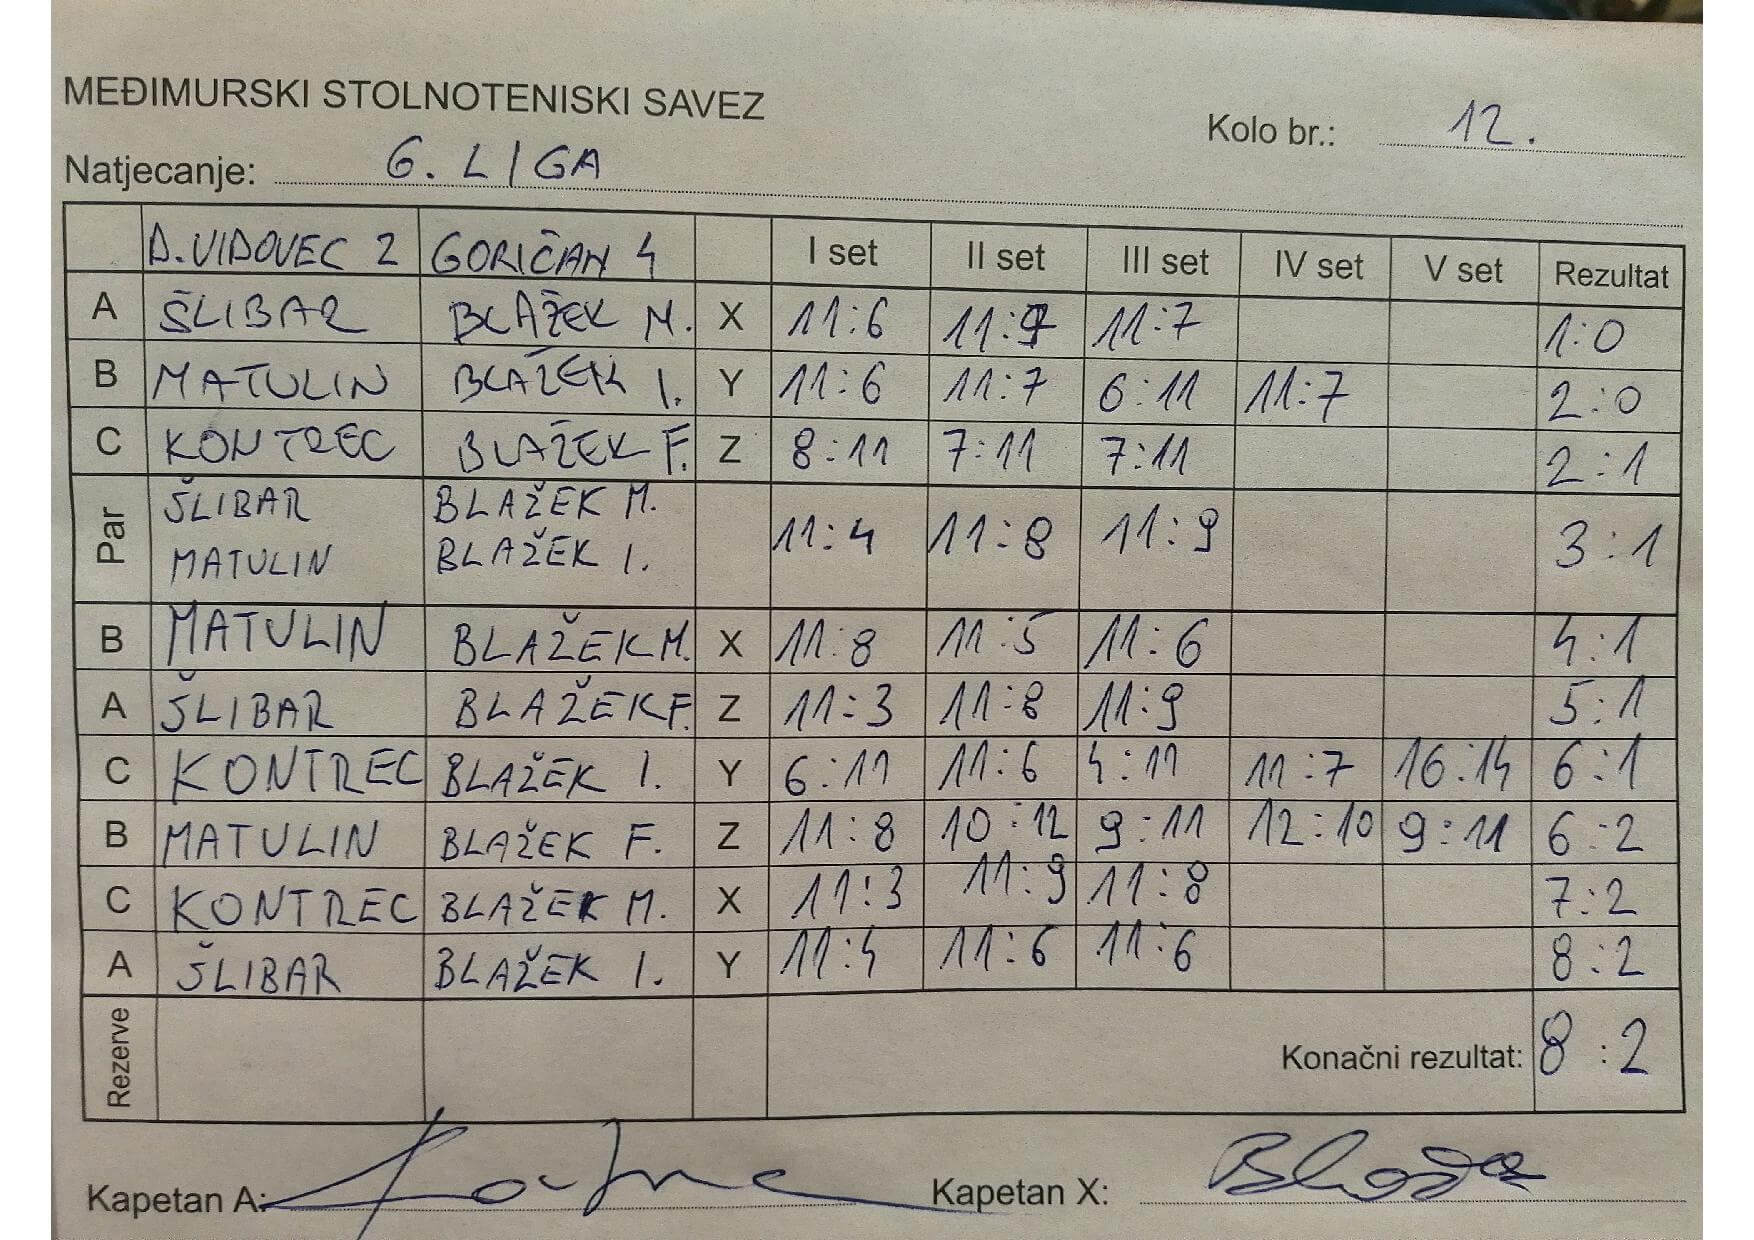 MEĐIMURSKI STOLNOTENISKI SAVEZ
Kolo br.: 12.
Natjecanje: 6. LIGA
D. VIDOVEC 2 GORIČAN 4 I set II set III set IV set V set Rezultat
A ŠLIBAR BLAŽEK M. X 11:6 11:9 11:7 1:0
B MATULIN BLAŽEK I. Y 11:6 11:7 6:11 11:7 2:0
C KONTREC BLAŽEK F. Z 8:11 7:11 7:11 2:1
Par ŠLIBAR BLAŽEK M. 11:4 11:8 11:9 3:1
MATULIN BLAŽEK I.
B MATULIN BLAŽEK M. X 11:8 11:5 11:6 4:1
A ŠLIBAR BLAŽEK F. Z 11:3 11:8 11:9 5:1
C KONTREC BLAŽEK I. Y 6:11 11:6 4:11 11:7 16:14 6:1
B MATULIN BLAŽEK F. Z 11:8 10:12 9:11 12:10 9:11 6:2
C KONTREC BLAŽEK M. X 11:3 11:9 11:8 7:2
A ŠLIBAR BLAŽEK I. Y 11:4 11:6 11:6 8:2
Rezerve Konačni rezultat: 8:2
Kapetan A: Kapetan X: